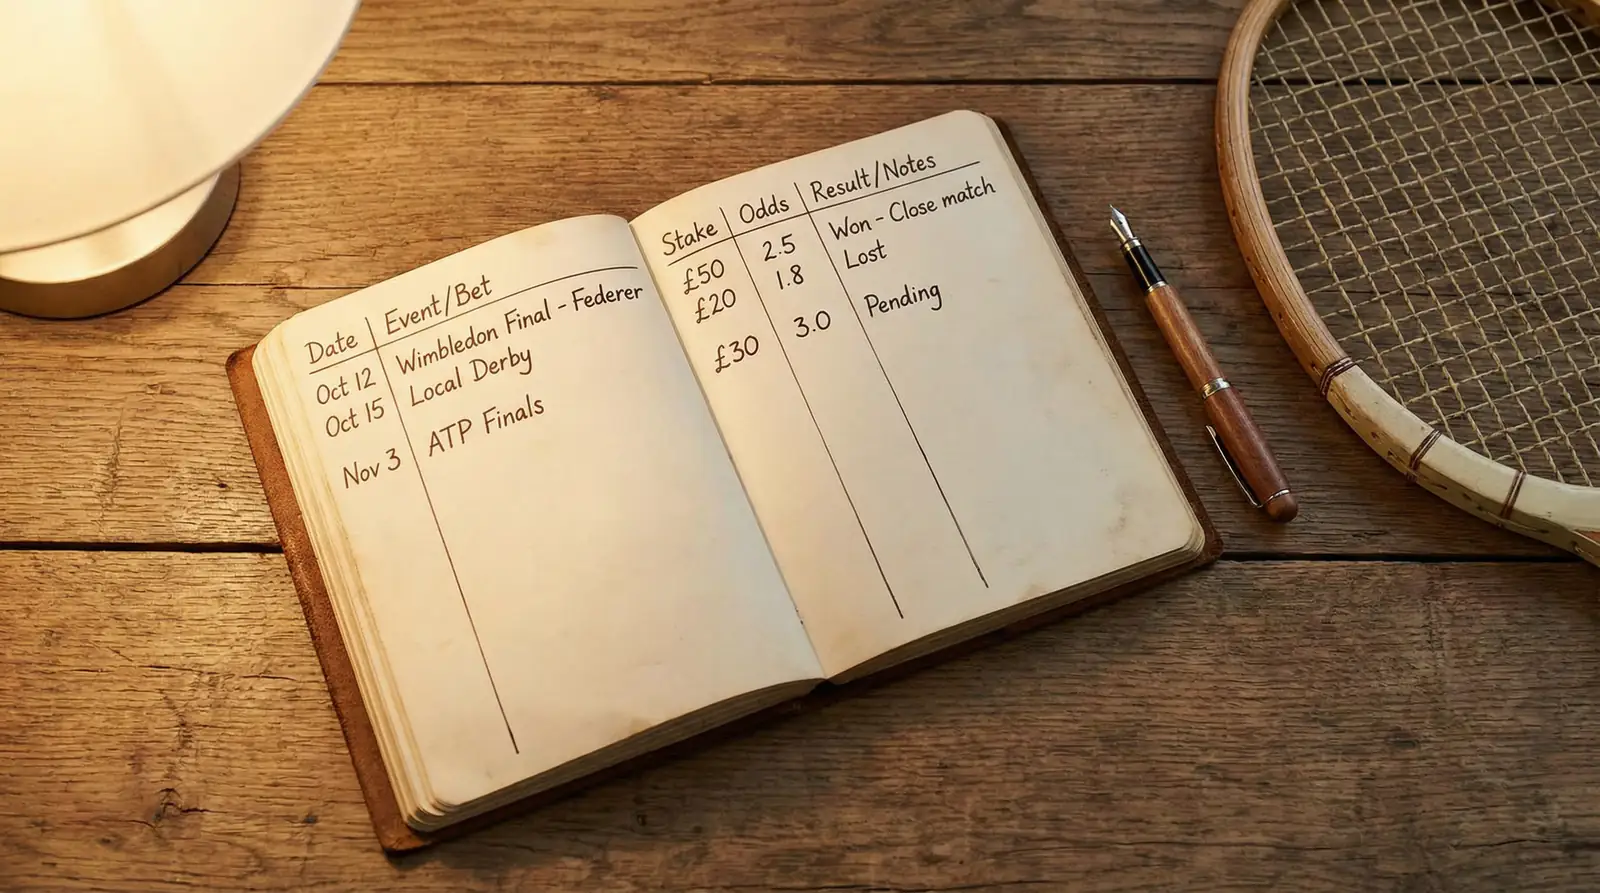 Date Event/Bet Stake Odds Result/Notes
Oct 12 Wimbledon Final - Federer £50 2.5 Won - Close match
Oct 15 Local Derby £20 1.8 Lost
Nov 3 ATP Finals £30 3.0 Pending